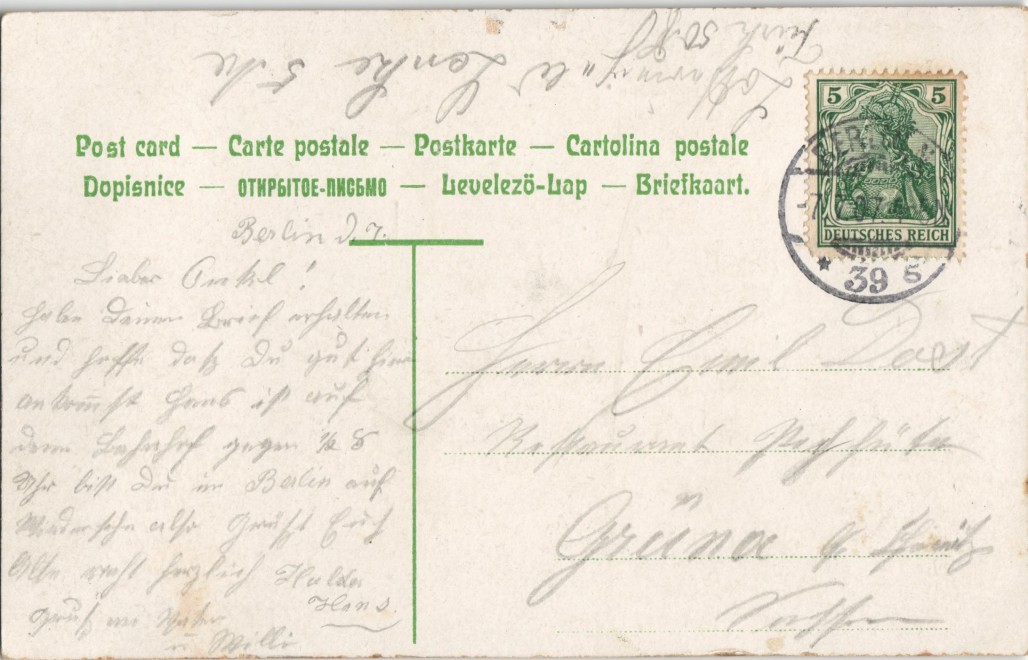 Post card — Carte postale — Postkarte — Cartolina postale
Dopisnice — ОТКРЫТОЕ-ПИСЬМО — Levelező-Lap — Briefkaart.
5 5
DEUTSCHES REICH
39 5
Berlin d 7.
Lieber Onkel!
habe deinen Brief erhalten
und hoffe daß Du gut hier
ankommst Hans ist auf
dem Bahnhof gegen ½ 8
Uhr bist Du in Berlin auf
Wiedersehn also Grüßt Euch
Alle recht herzlich Hulda
Hans
Gruß an Vater
u Willi
Herrn Emil Dost
Restaurant
Grüna
Sachsen